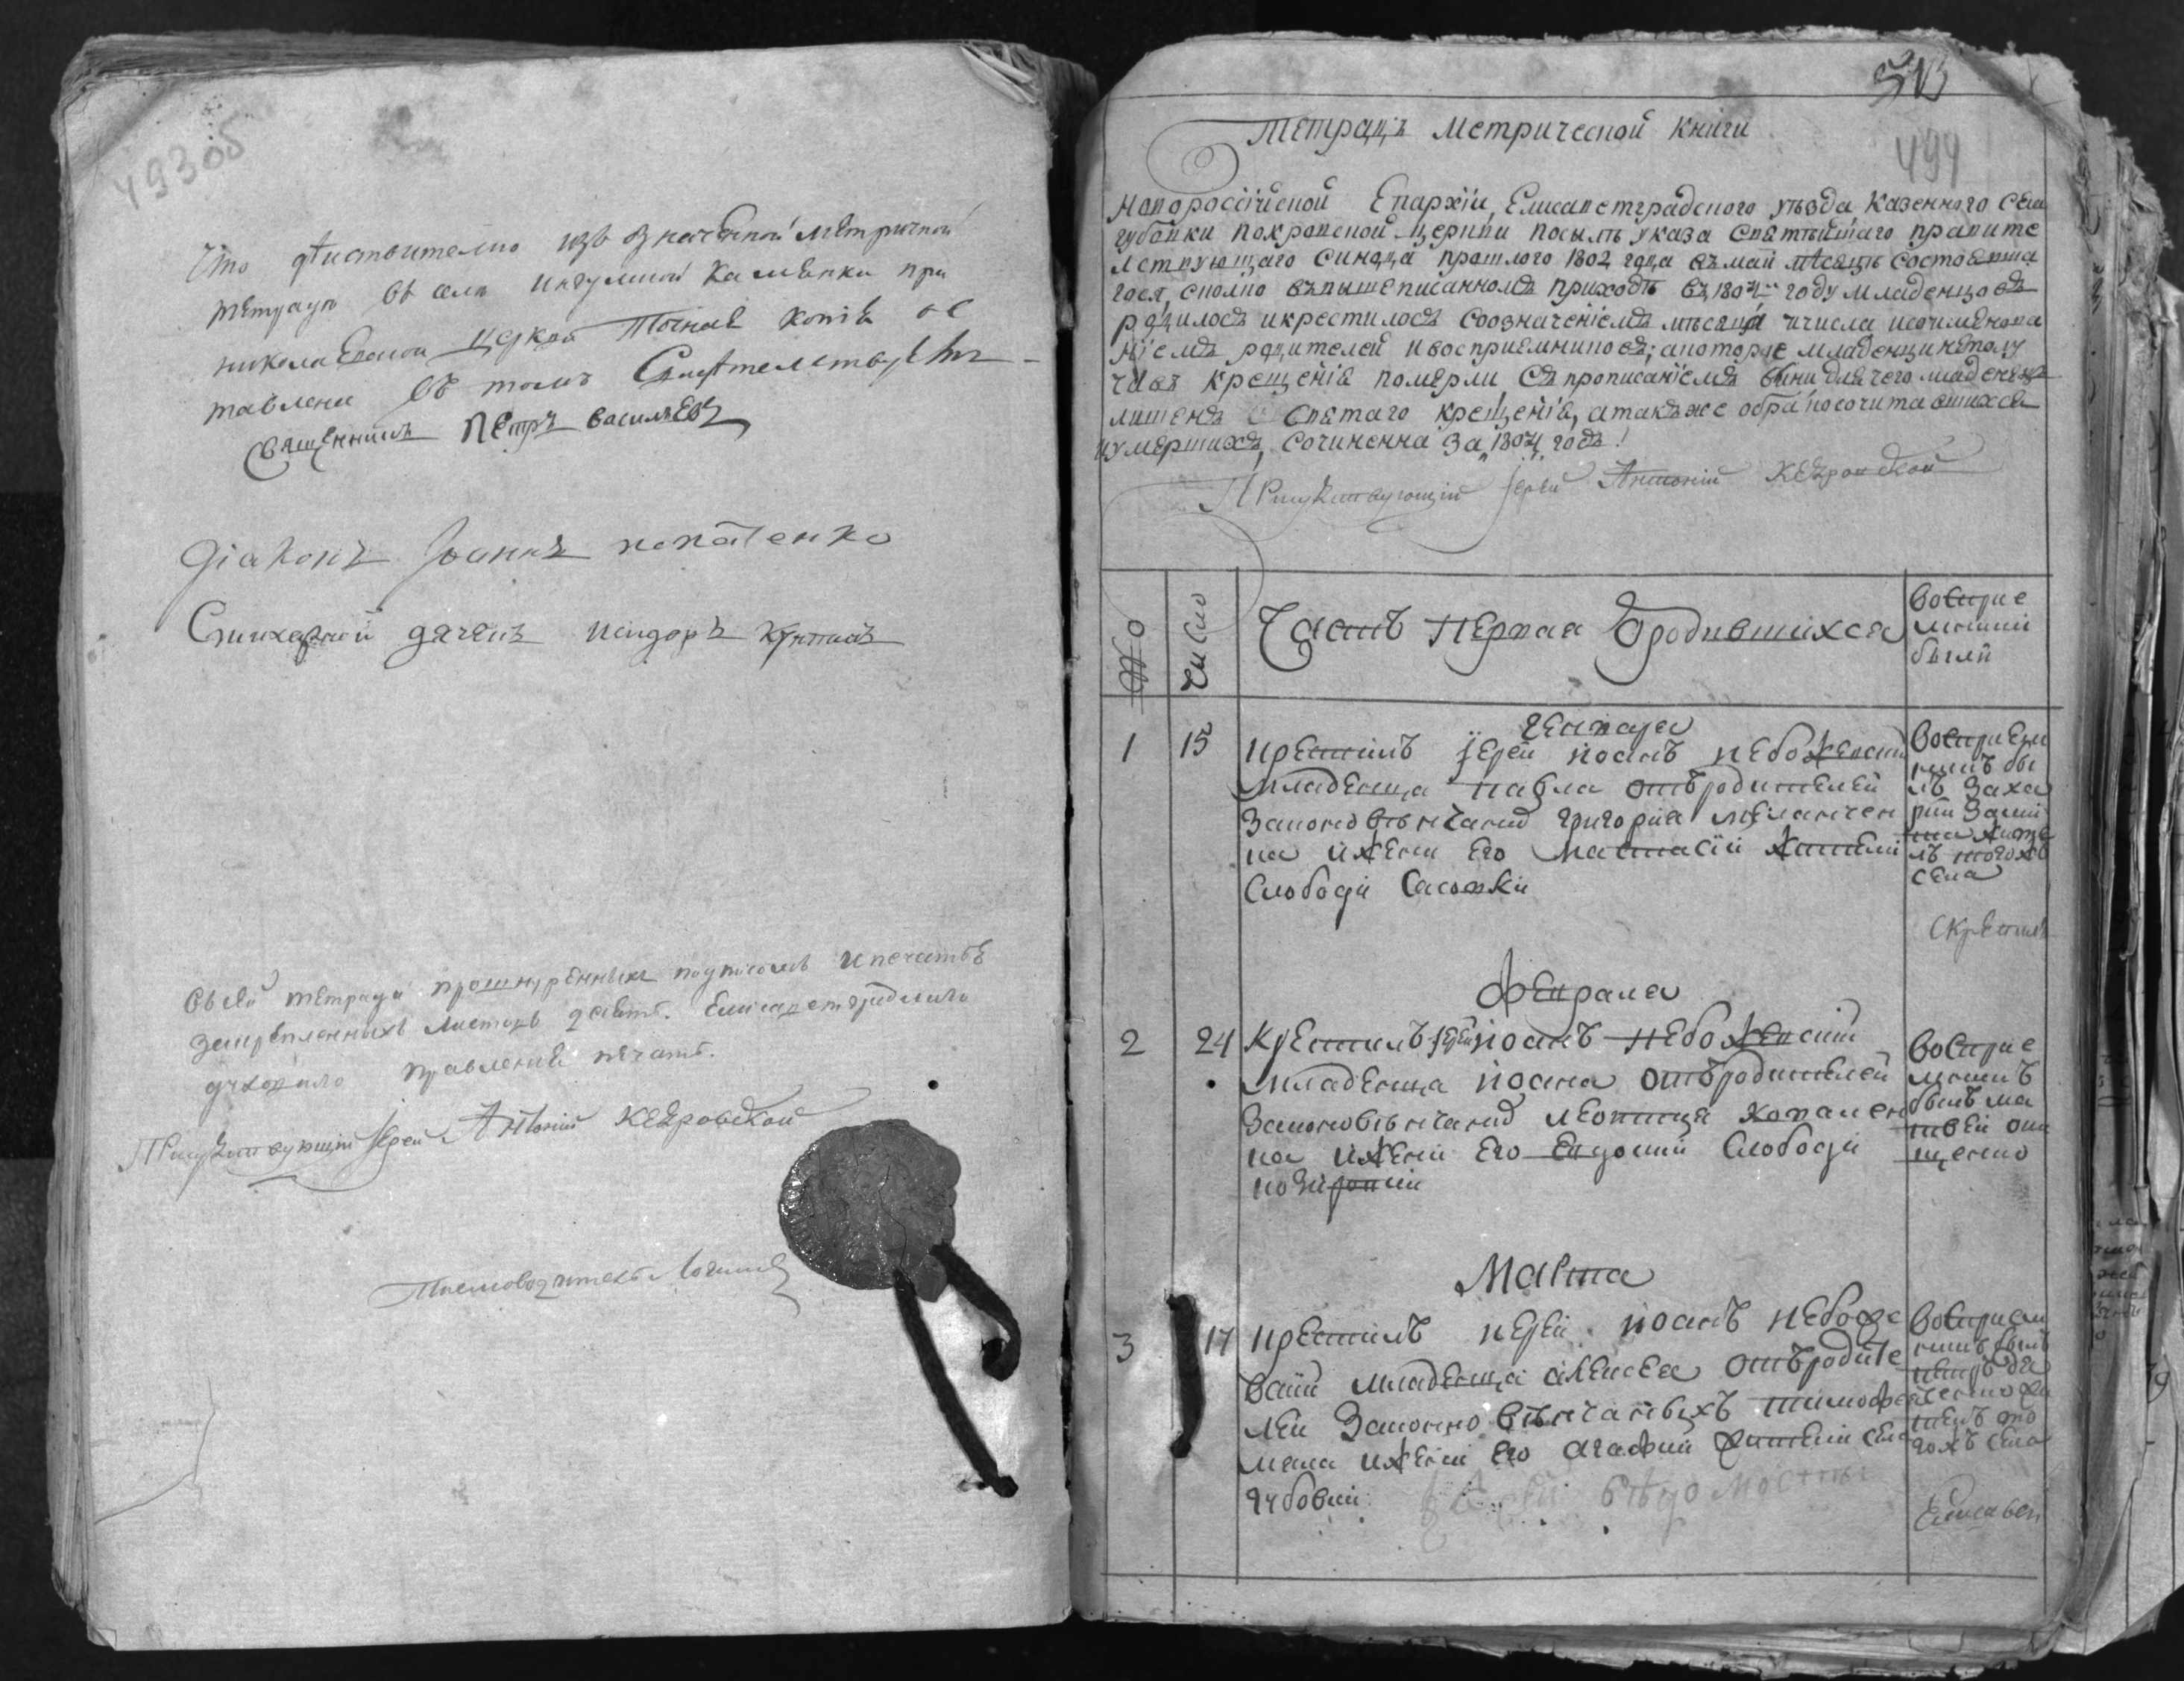 493об
Что дѣиствително изъ означенной метричной
тетради въ селѣ ингулной Каменки при
николаевской церкви точная копія ос
тавлена въ томъ Свидѣтелствуемъ
священникъ Петръ василіевъ
діаконъ Іоаннъ
Стихарный дячекъ исидоръ
въ сей тетради прошнуренныхъ подписомъ и печатьѣ
закрѣпленныхъ листовъ девять. Елисаветградскаго
духовнаго правленія печать.
Присудствующій Іерей Антоній Кедровской
Писмоводитель
494
Тетрадь Метрической Книги
Новоросійской Епархіи, Елисаветградского уѣзда, казенного села
губовки покровской церкви посылѣ указа святѣйшаго правите
лствующаго синода прошлого 1802 года въ май мѣсяцѣ состоявша
гося, сколко въ вышеписанномъ приходѣ въ 1804м году младенцовъ
родилосъ и крестилосъ соозначеніемъ мѣсяца и числа и соименова
ніемъ родителей и восприемниковъ; а которые младенци
часъ крещенія померли съ прописаніемъ вини для чего младенецъ
лишенъ святаго крещенія, а такъже о бракосочитавшихся
и умершихъ, сочиненна за 1804 годъ!
Присудствующій Іерей Антоній Кедровской
Число
Часть Первая О родившихся
Восприе
мники
были
генваря
1 15 крестилъ іерей иоанъ небожевскій
младенца павла отъ родителей
законовѣнчанид григория
ка и жени его настасіи жители
Слободи Сасовки
Восприем
никъ бы
лъ Заха
рий
жите
лъ тогожъ
села
скрепилъ
февраля
2 24 крестилъ іерей иоанъ небожевскій
младенца иоана отъ родителей
законовѣнчанид леонтия ковален
ка и жени его евдокии слободи
козировки
Восприе
мникъ
билъ ма
твей они
щенко
Марта
3 17 крестилъ иерей иоанъ небоже
вский младенца алексея отъ родите
лей законно вѣнчанныхъ тимофея
и жени его агафии жители села
губовки
Восприем
никъ билъ
жи
тель то
гожъ села
вѣдомости
Елисавет